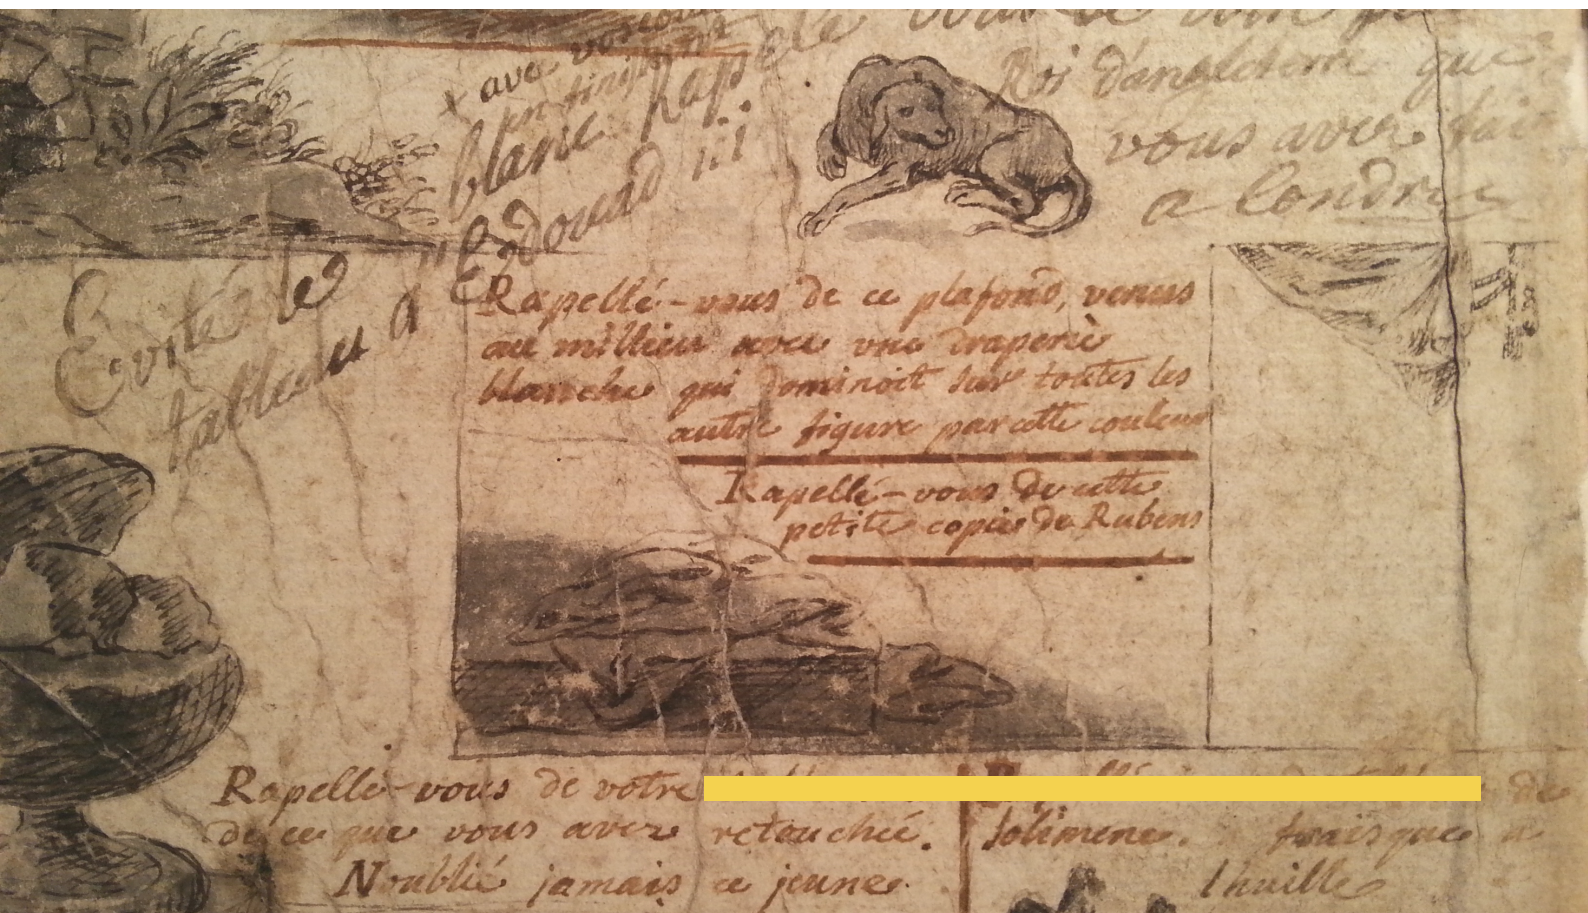 x avec
en finissant
blanc. Rapelé vous de
Evité les
tableau d'Edouard iii
Roi d'angleterre que
vous avez fait
a Londre
Rapellé-vous de ce plafond, venus
au millieu avec une draperie
blanche qui dominoit sur toutes les
autre figure par cette couleur
Rapellé-vous de cette
petite copie de Rubens
Rapellé-vous de votre
de ce que vous avez retouchée.
Noublié jamais ce jeune
de
Solimene. fraisque a
lhuille